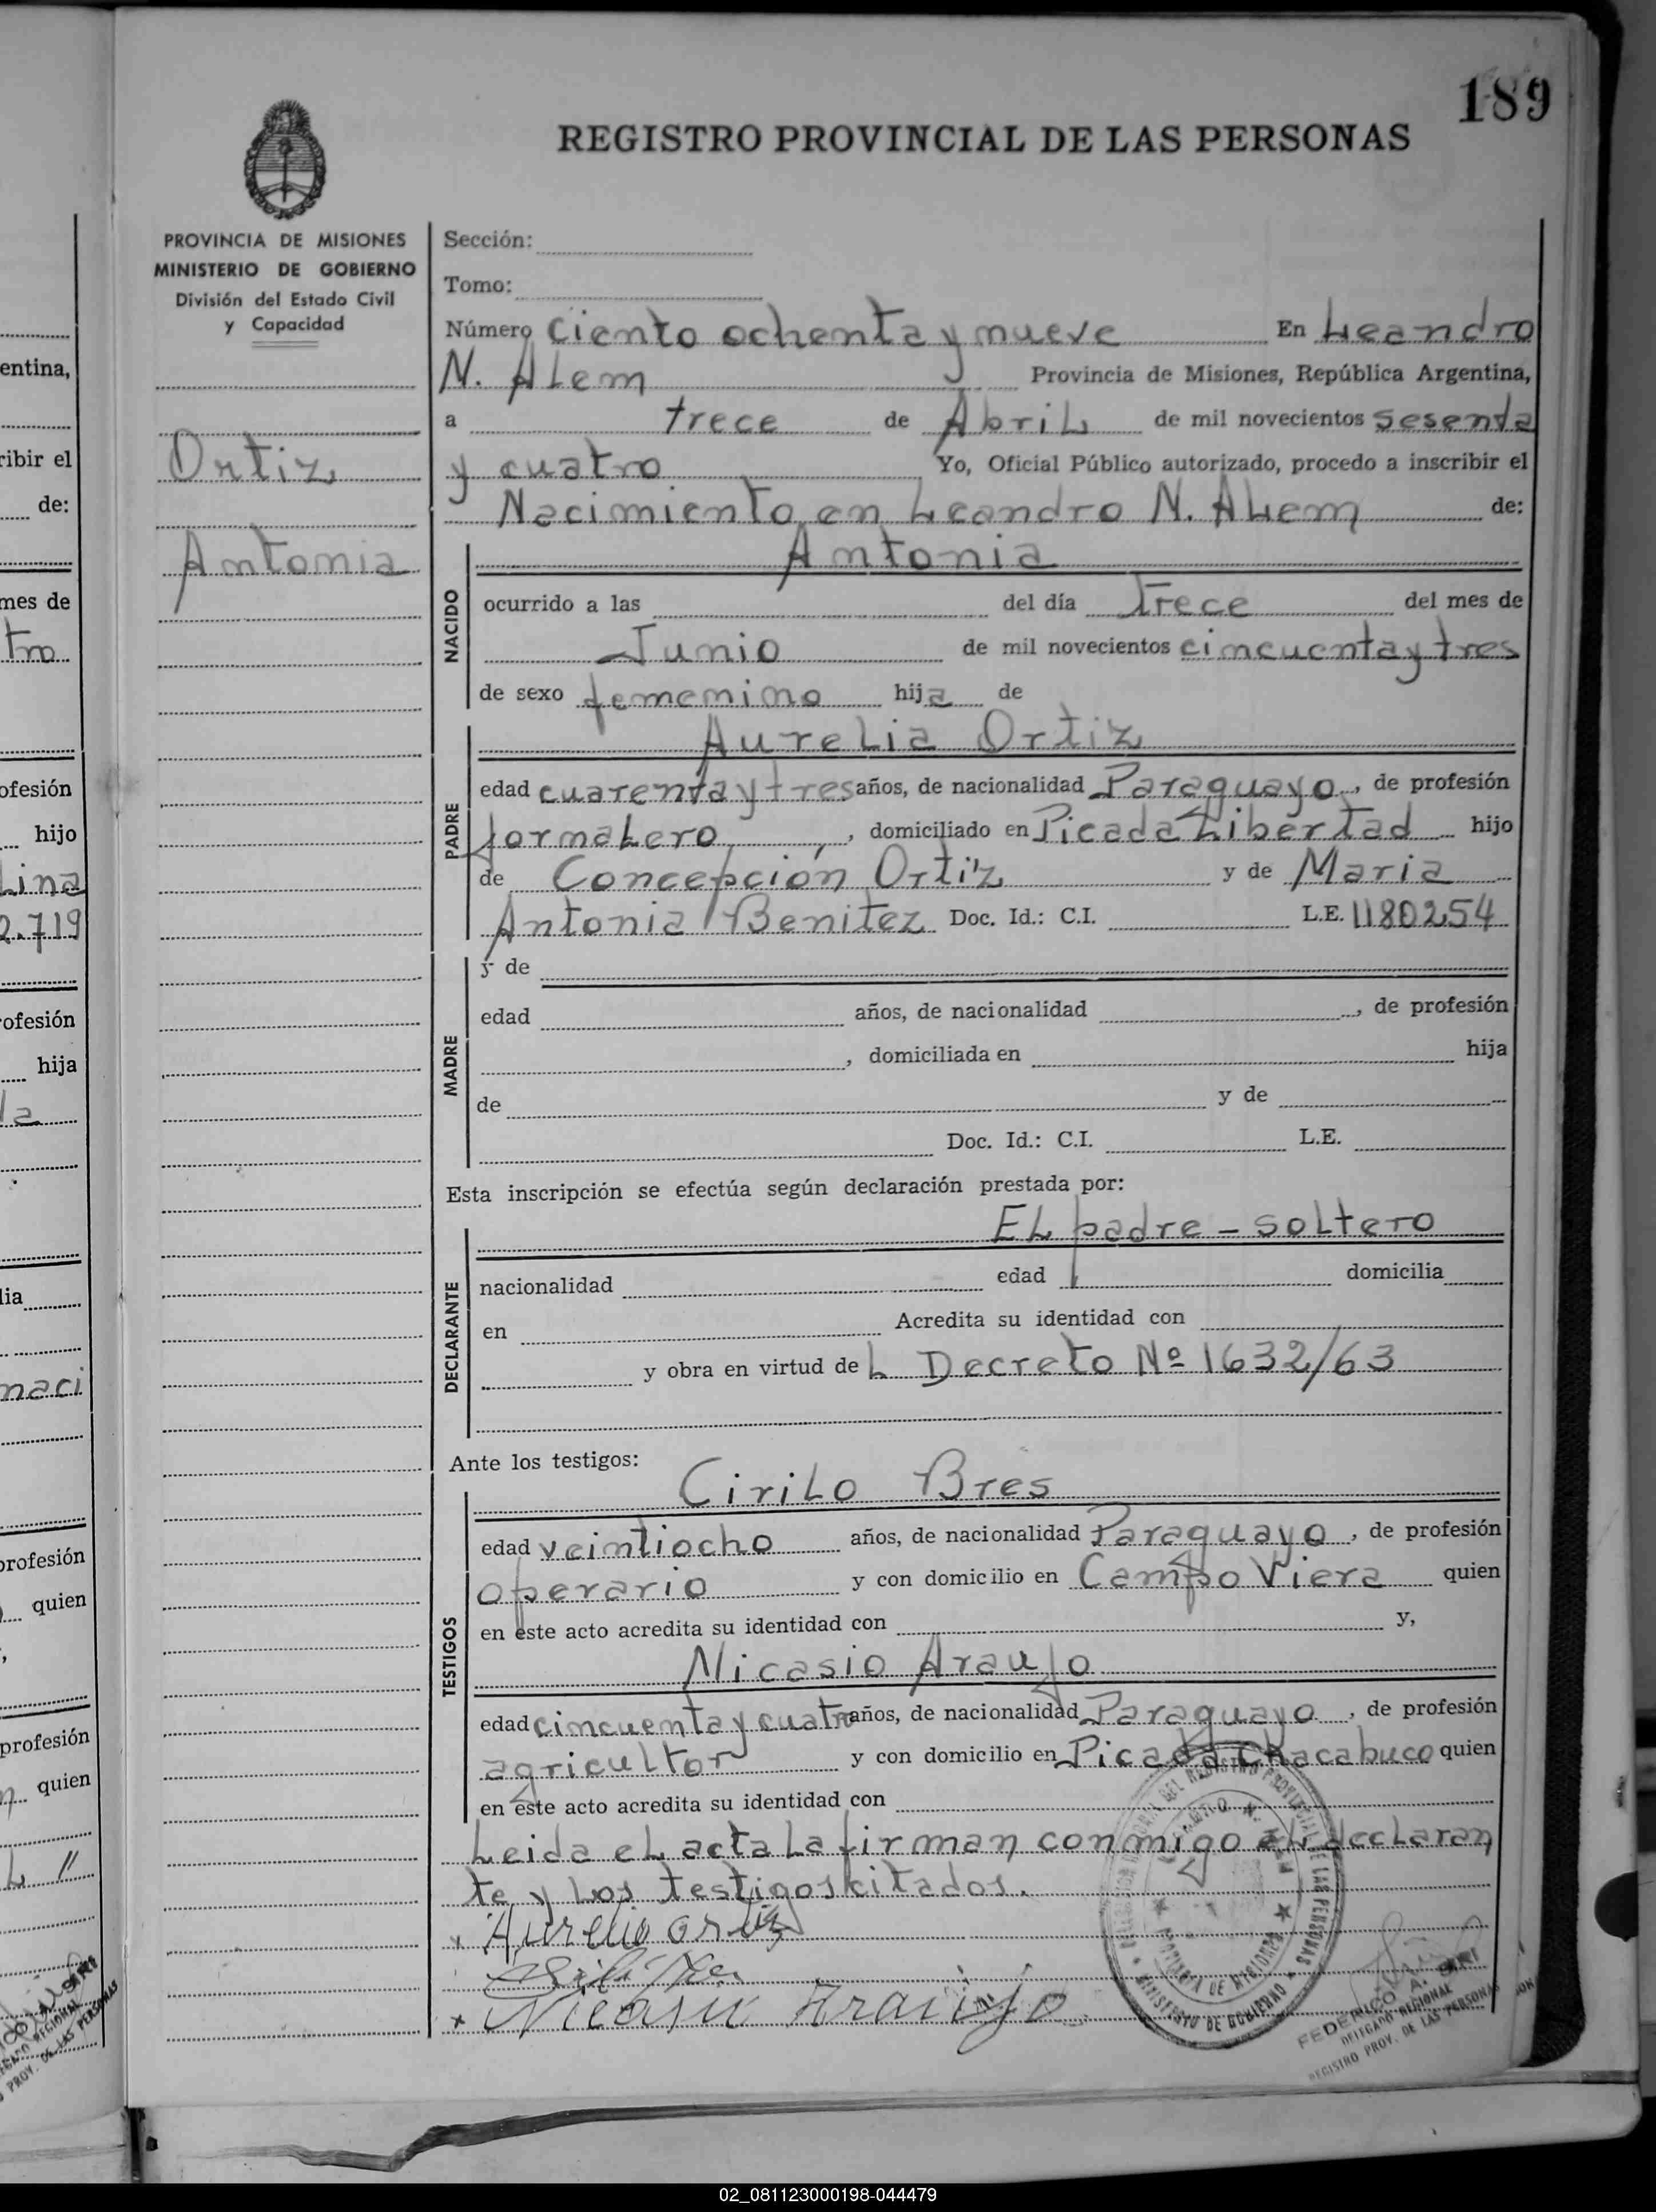 189
REGISTRO PROVINCIAL DE LAS PERSONAS
PROVINCIA DE MISIONES
MINISTERIO DE GOBIERNO
División del Estado Civil
y Capacidad
Ortiz
Antonia
Sección:
Tomo:
Número ciento ochenta y nueve En Leandro
N. Alem Provincia de Misiones, República Argentina,
a trece de Abril de mil novecientos sesenta
y cuatro Yo, Oficial Público autorizado, procedo a inscribir el
Nacimiento en Leandro N. Alem de:
Antonia
NACIDO
ocurrido a las del día Trece del mes de
Junio de mil novecientos cincuenta y tres
de sexo femenino hija de
Aurelia Ortiz
PADRE
edad cuarenta y tres años, de nacionalidad Paraguayo, de profesión
jornalero, domiciliado en Picada Libertad hijo
de Concepción Ortíz y de Maria
Antonia Benitez Doc. Id.: C.I. L.E. 1180254
MADRE
y de
edad años, de nacionalidad , de profesión
, domiciliada en hija
de y de
Doc. Id.: C.I. L.E.
Esta inscripción se efectúa según declaración prestada por:
El padre - soltero
DECLARANTE
nacionalidad edad domicilia
en Acredita su identidad con
y obra en virtud del Decreto Nº 1632/63
Ante los testigos:
Cirilo Bres
TESTIGOS
edad veintiocho años, de nacionalidad Paraguayo, de profesión
operario y con domicilio en Campo Viera quien
en este acto acredita su identidad con y,
Nicasio Araujo
edad cincuenta y cuatro años, de nacionalidad Paraguayo, de profesión
agricultor y con domicilio en Picada Chacabuco quien
en este acto acredita su identidad con
Leida el acta la firman conmigo el declaran
te y los testigos citados.
x Aurelio Ortiz
x Nicasio Araujo
DELEGACION REGIONAL DEL REGISTRO PROVINCIAL DE LAS PERSONAS
LEANDRO N. ALEM
PROVINCIA DE MISIONES
MINISTERIO DE GOBIERNO
FEDERICO A.
DELEGADO REGIONAL
REGISTRO PROV. DE LAS PERSONAS
entina,
ribir el
de:
mes de
tro
ofesión
hijo
Lina
2.719
rofesión
hija
la
lia
naci
profesión
quien
profesión
quien
L "
02_081123000198-044479